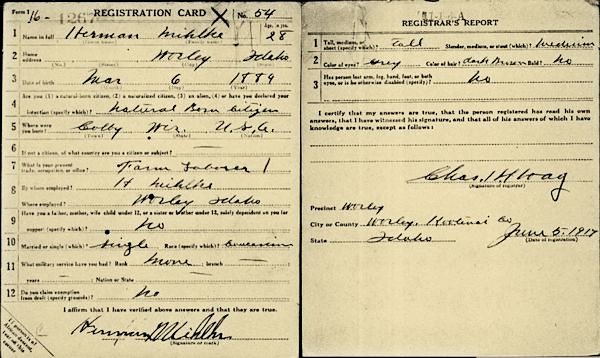 Form 1
16-
REGISTRATION CARD
No. 54
1 Name in full Herman Mihlke Age, in yrs. 28
(Given name) (Family name)
2 Home address Worley Idaho
(No.) (Street) (City) (State)
3 Date of birth Mar 6 1889
(Month) (Day) (Year)
4 Are you (1) a natural-born citizen, (2) a naturalized citizen, (3) an alien, (4) or have you declared your
intention (specify which)? Natural Born Citizen
5 Where were you born? Colby Wis. U.S.A.
(Town) (State) (Nation)
6 If not a citizen, of what country are you a citizen or subject?
7 What is your present trade, occupation, or office? Farm Laborer 1
8 By whom employed? H Mihlke
Where employed? Worley Idaho
9 Have you a father, mother, wife, child under 12, or a sister or brother under 12, solely dependent on you for
support (specify which)? No
10 Married or single (which)? Single Race (specify which)? Caucasian
11 What military service have you had? Rank None ; branch
years ; Nation or State
12 Do you claim exemption from draft (specify grounds)? No
I affirm that I have verified above answers and that they are true.
Herman Mihlke
(Signature or mark)
REGISTRAR'S REPORT
1 Tall, medium, or short (specify which)? Tall Slender, medium, or stout (which)? Medium
2 Color of eyes? Grey Color of hair? dark Brown Bald? No
3 Has person lost arm, leg, hand, foot, or both eyes, or is he otherwise disabled (specify)? No
I certify that my answers are true, that the person registered has read his own
answers, that I have witnessed his signature, and that all of his answers of which I have
knowledge are true, except as follows:
Chas. H Hoag
(Signature of registrar)
Precinct Worley
City or County Worley, Kootenai Co
State Idaho
June 5, 1917
(Date of registration)